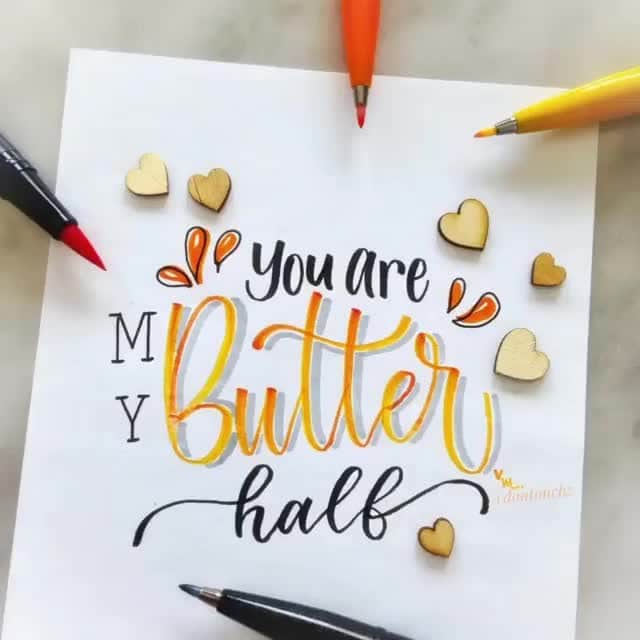 You are
MY Butter
half